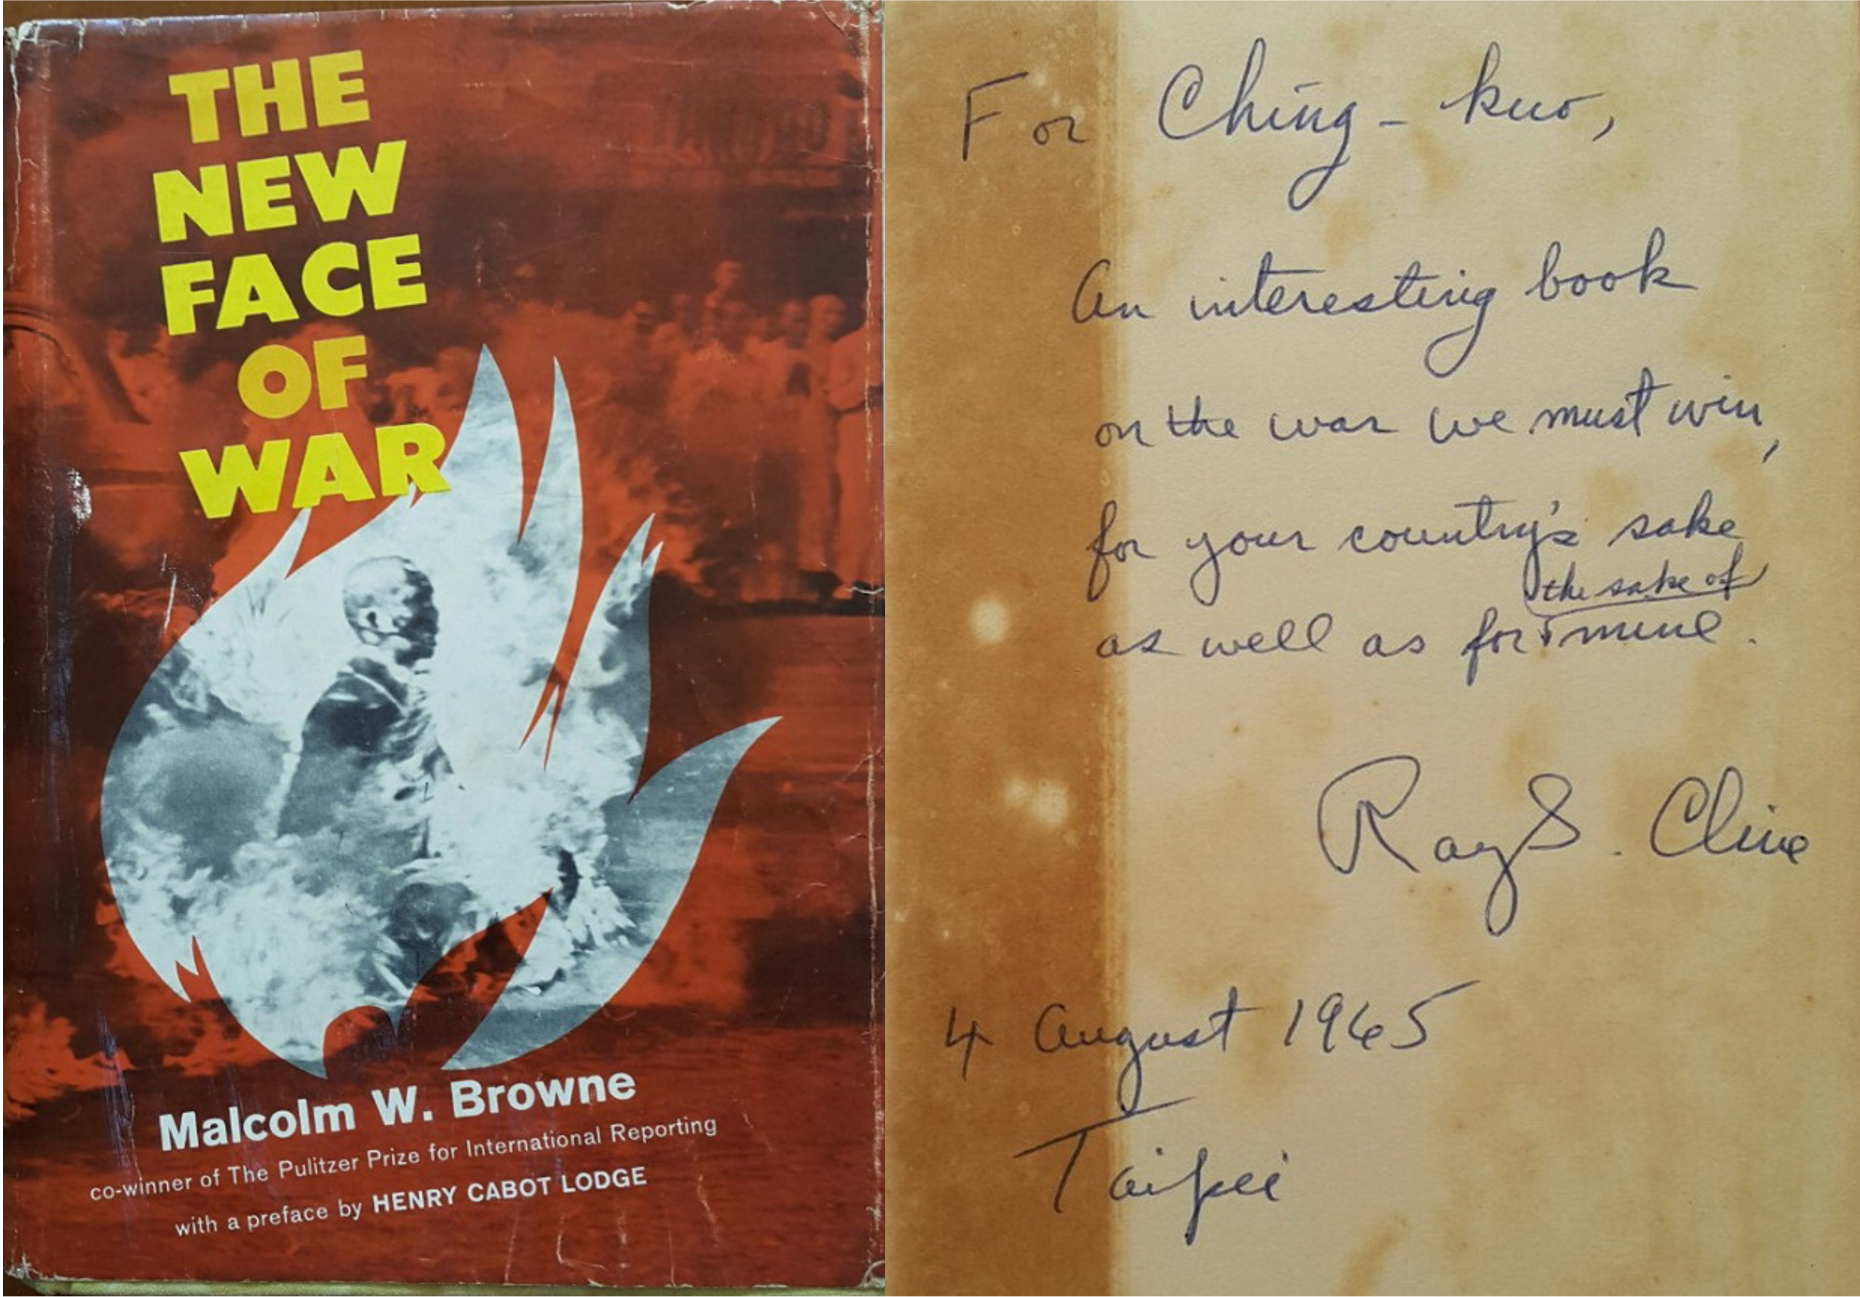 THE
NEW
FACE
OF
WAR
Malcolm W. Browne
co-winner of The Pulitzer Prize for International Reporting
with a preface by HENRY CABOT LODGE
For Ching-kuo,
An interesting book
on the war we must win,
for your country's sake
the sake of
as well as for mine.
Ray S. Cline
4 August 1965
Taipei